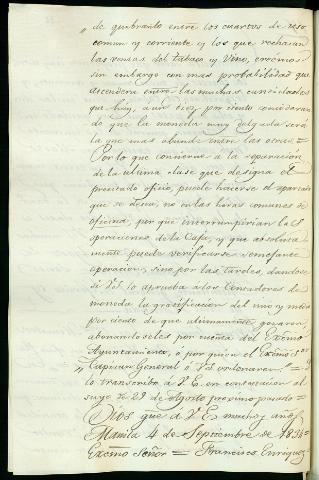 de quebranto entre los cuartos de uso
comun y corriente y los que rechazan
las rentas del tabaco y vino, creemos
sin embargo con mas probabilidad que
ascendera entre las muchas cantidades
que hay, á un diez por ciento consideran
do que la moneda muy delgada será
la que mas abunde entre las otras =
Por lo que concierne á la operacion
de la ultima clase que designa el
precitado oficio, puede hacerse el apartado
que se desea, no en las horas comunes de
oficina, por que interrumpirian las
operaciones de la Caja, y que absoluta
mente puede verificarse semejante
operacion, sino por las tardes, dandose
si V.E. lo aprueba á los Contadores de
moneda la gratificacion del uno y medio
por ciento de que ultimamente gozaron,
abonandoseles por cuenta del Excmo
Ayuntamiento, ó por quien el Excmo Sor
Capitan General ó V.E. ordenaren =
lo transcribo á V.E. en contestacion al
suyo de 29 de Agosto proximo pasado =
Dios gue á V.E. muchos años
Manila 4 de Septiembre de 1834 =
Excmo Señor = Francisco Enriquez